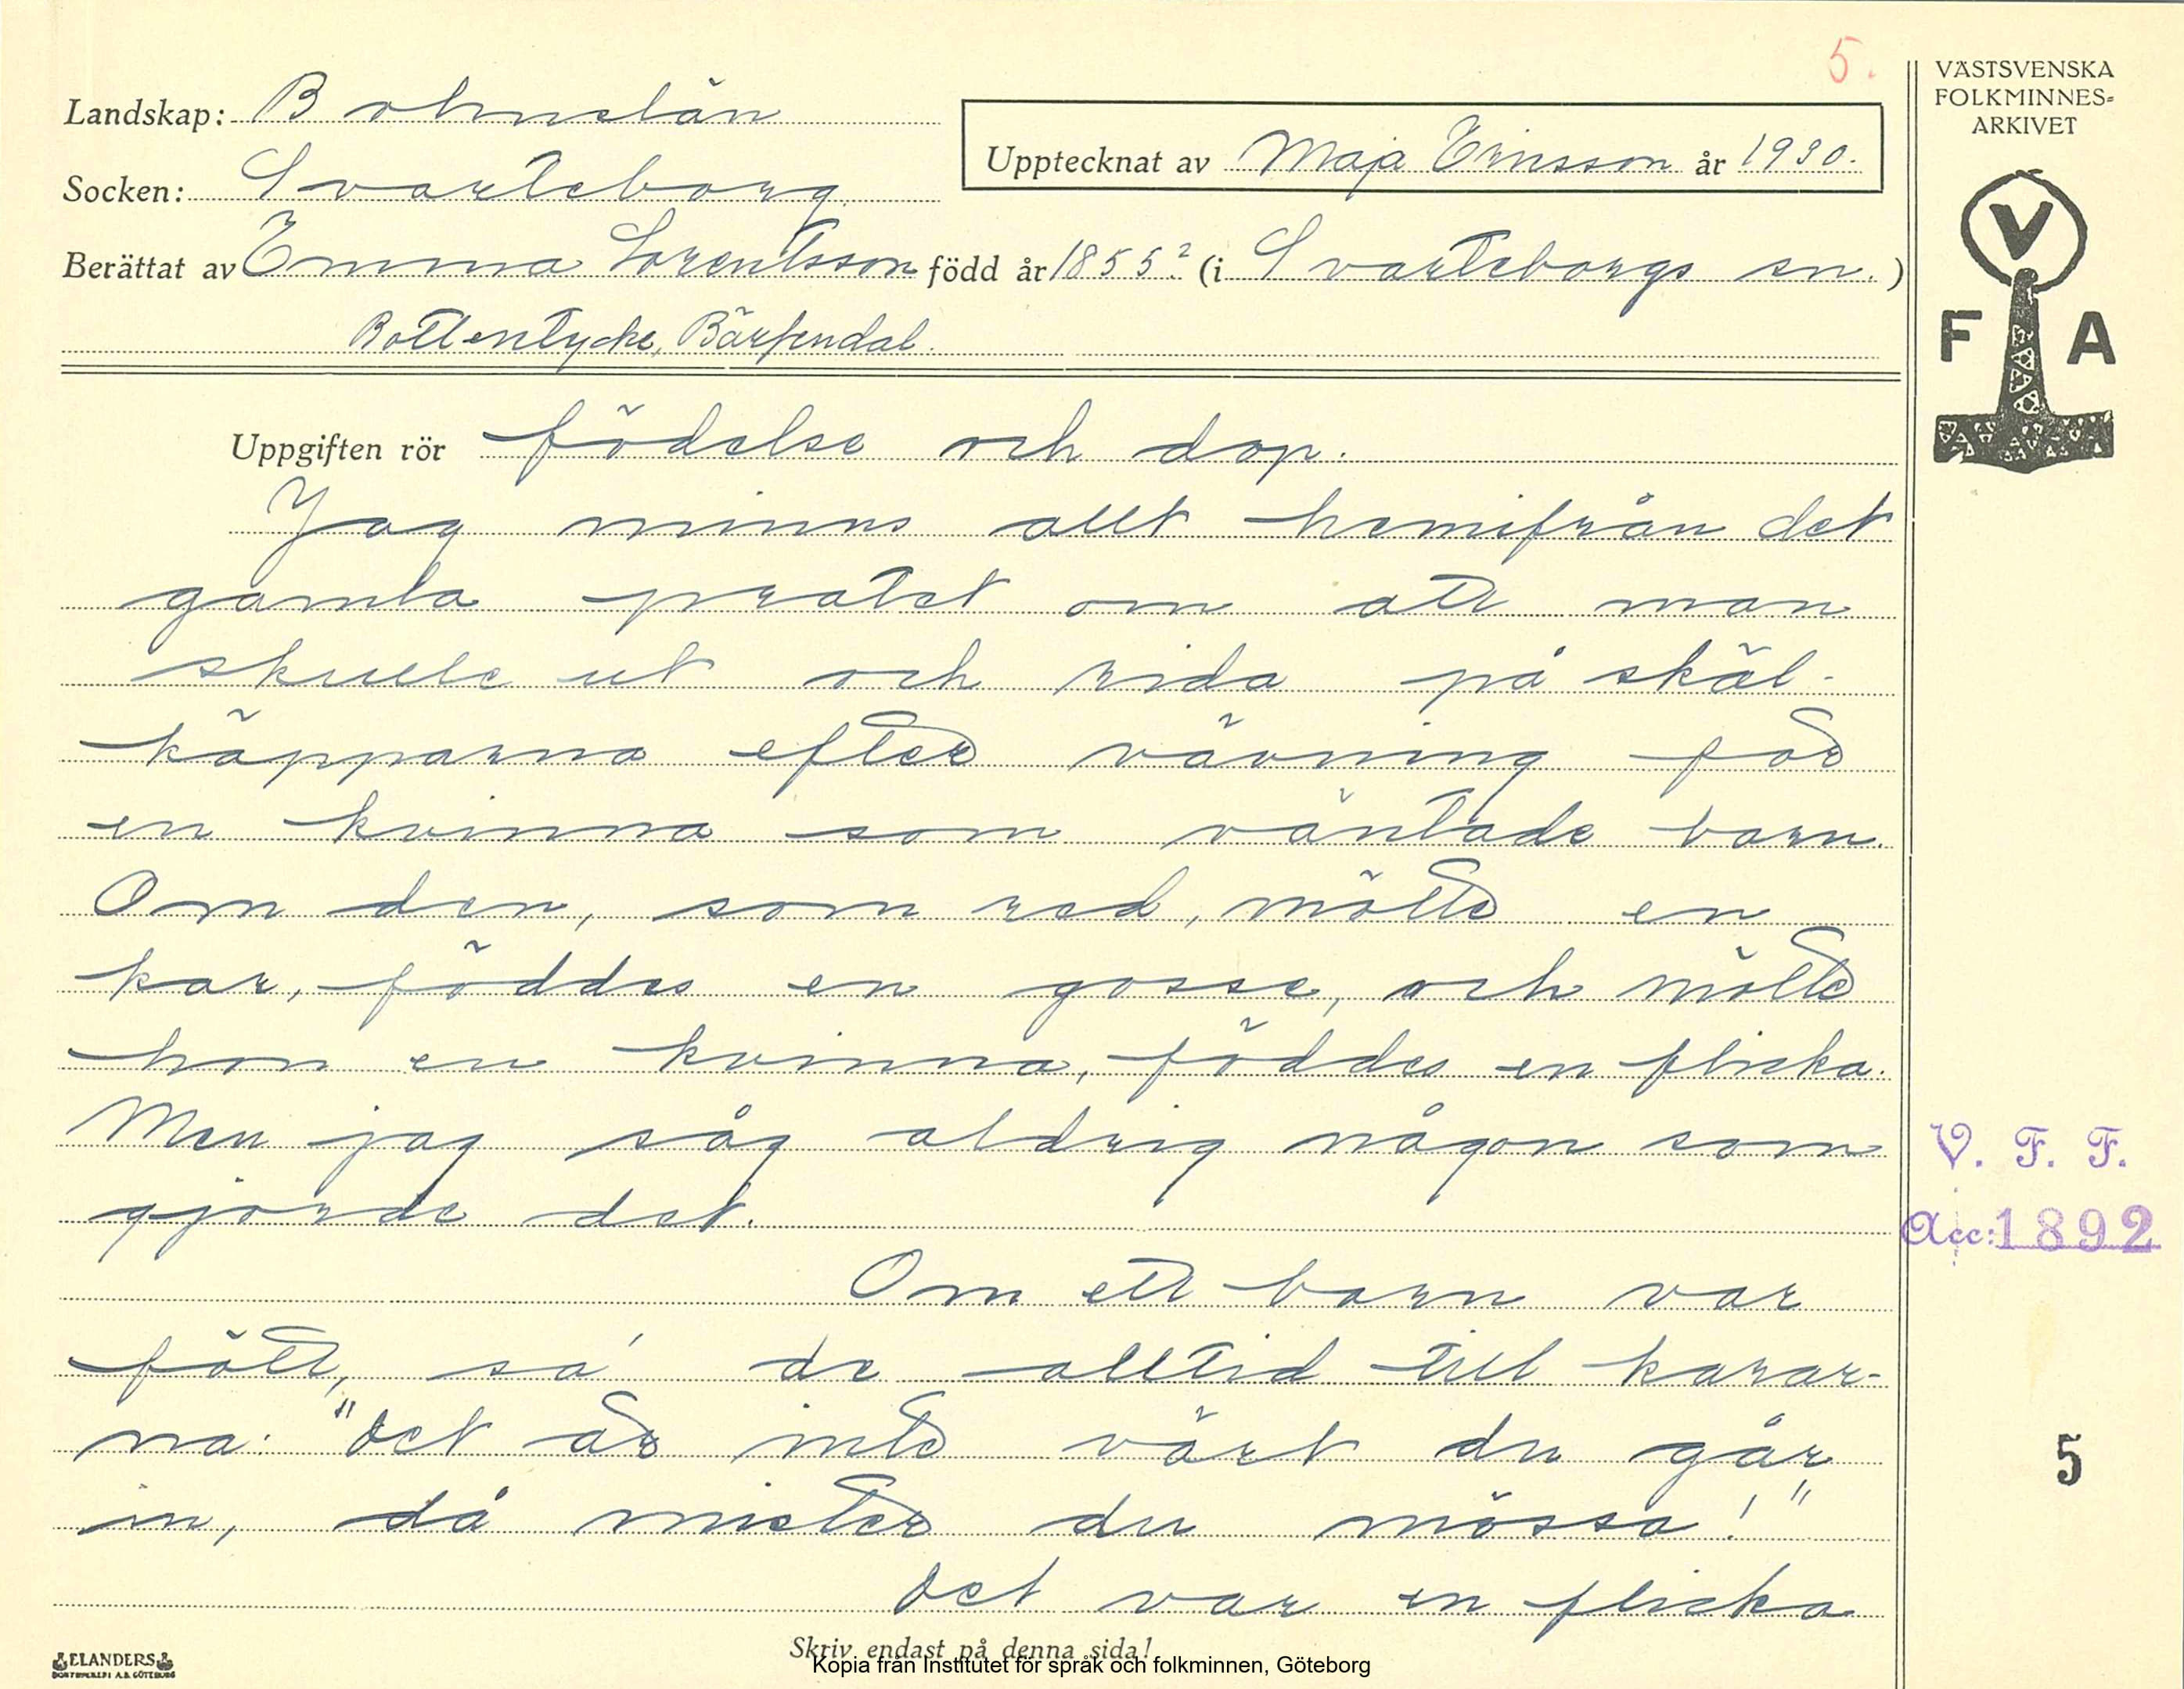 5.
VÄSTSVENSKA
FOLKMINNES-
ARKIVET
Landskap: Bohuslän
Upptecknat av Maja Ericsson år 1930.
Socken: Svarteborg
Berättat av Emma Lorentsson född år 1855? (i Svarteborgs sn.)
Bottentycke, Bärfendal.
V
F A
Uppgiften rör födelse och dop.
Jag minns allt hemifrån det
gamla pratet om att man
skulle ut och rida på skäl-
käpparna efter vävning för
en kvinna som väntade barn.
Om den, som red, mötte en
kar, föddes en gosse, och mötte
hon en kvinna, föddes en flicka.
Men jag såg aldrig någon som
gjorde det.
V. F. F.
Acc: 1892
Om ett barn var
fött, sa' de alltid till karar-
na: "Det är inte värt du går
in, då mister du mössa!"
5
Det var en flicka
Skriv endast på denna sida!
ELANDERS
BOKTRYCKERI A.B. GÖTEBORG
Kopia från Institutet för språk och folkminnen, Göteborg